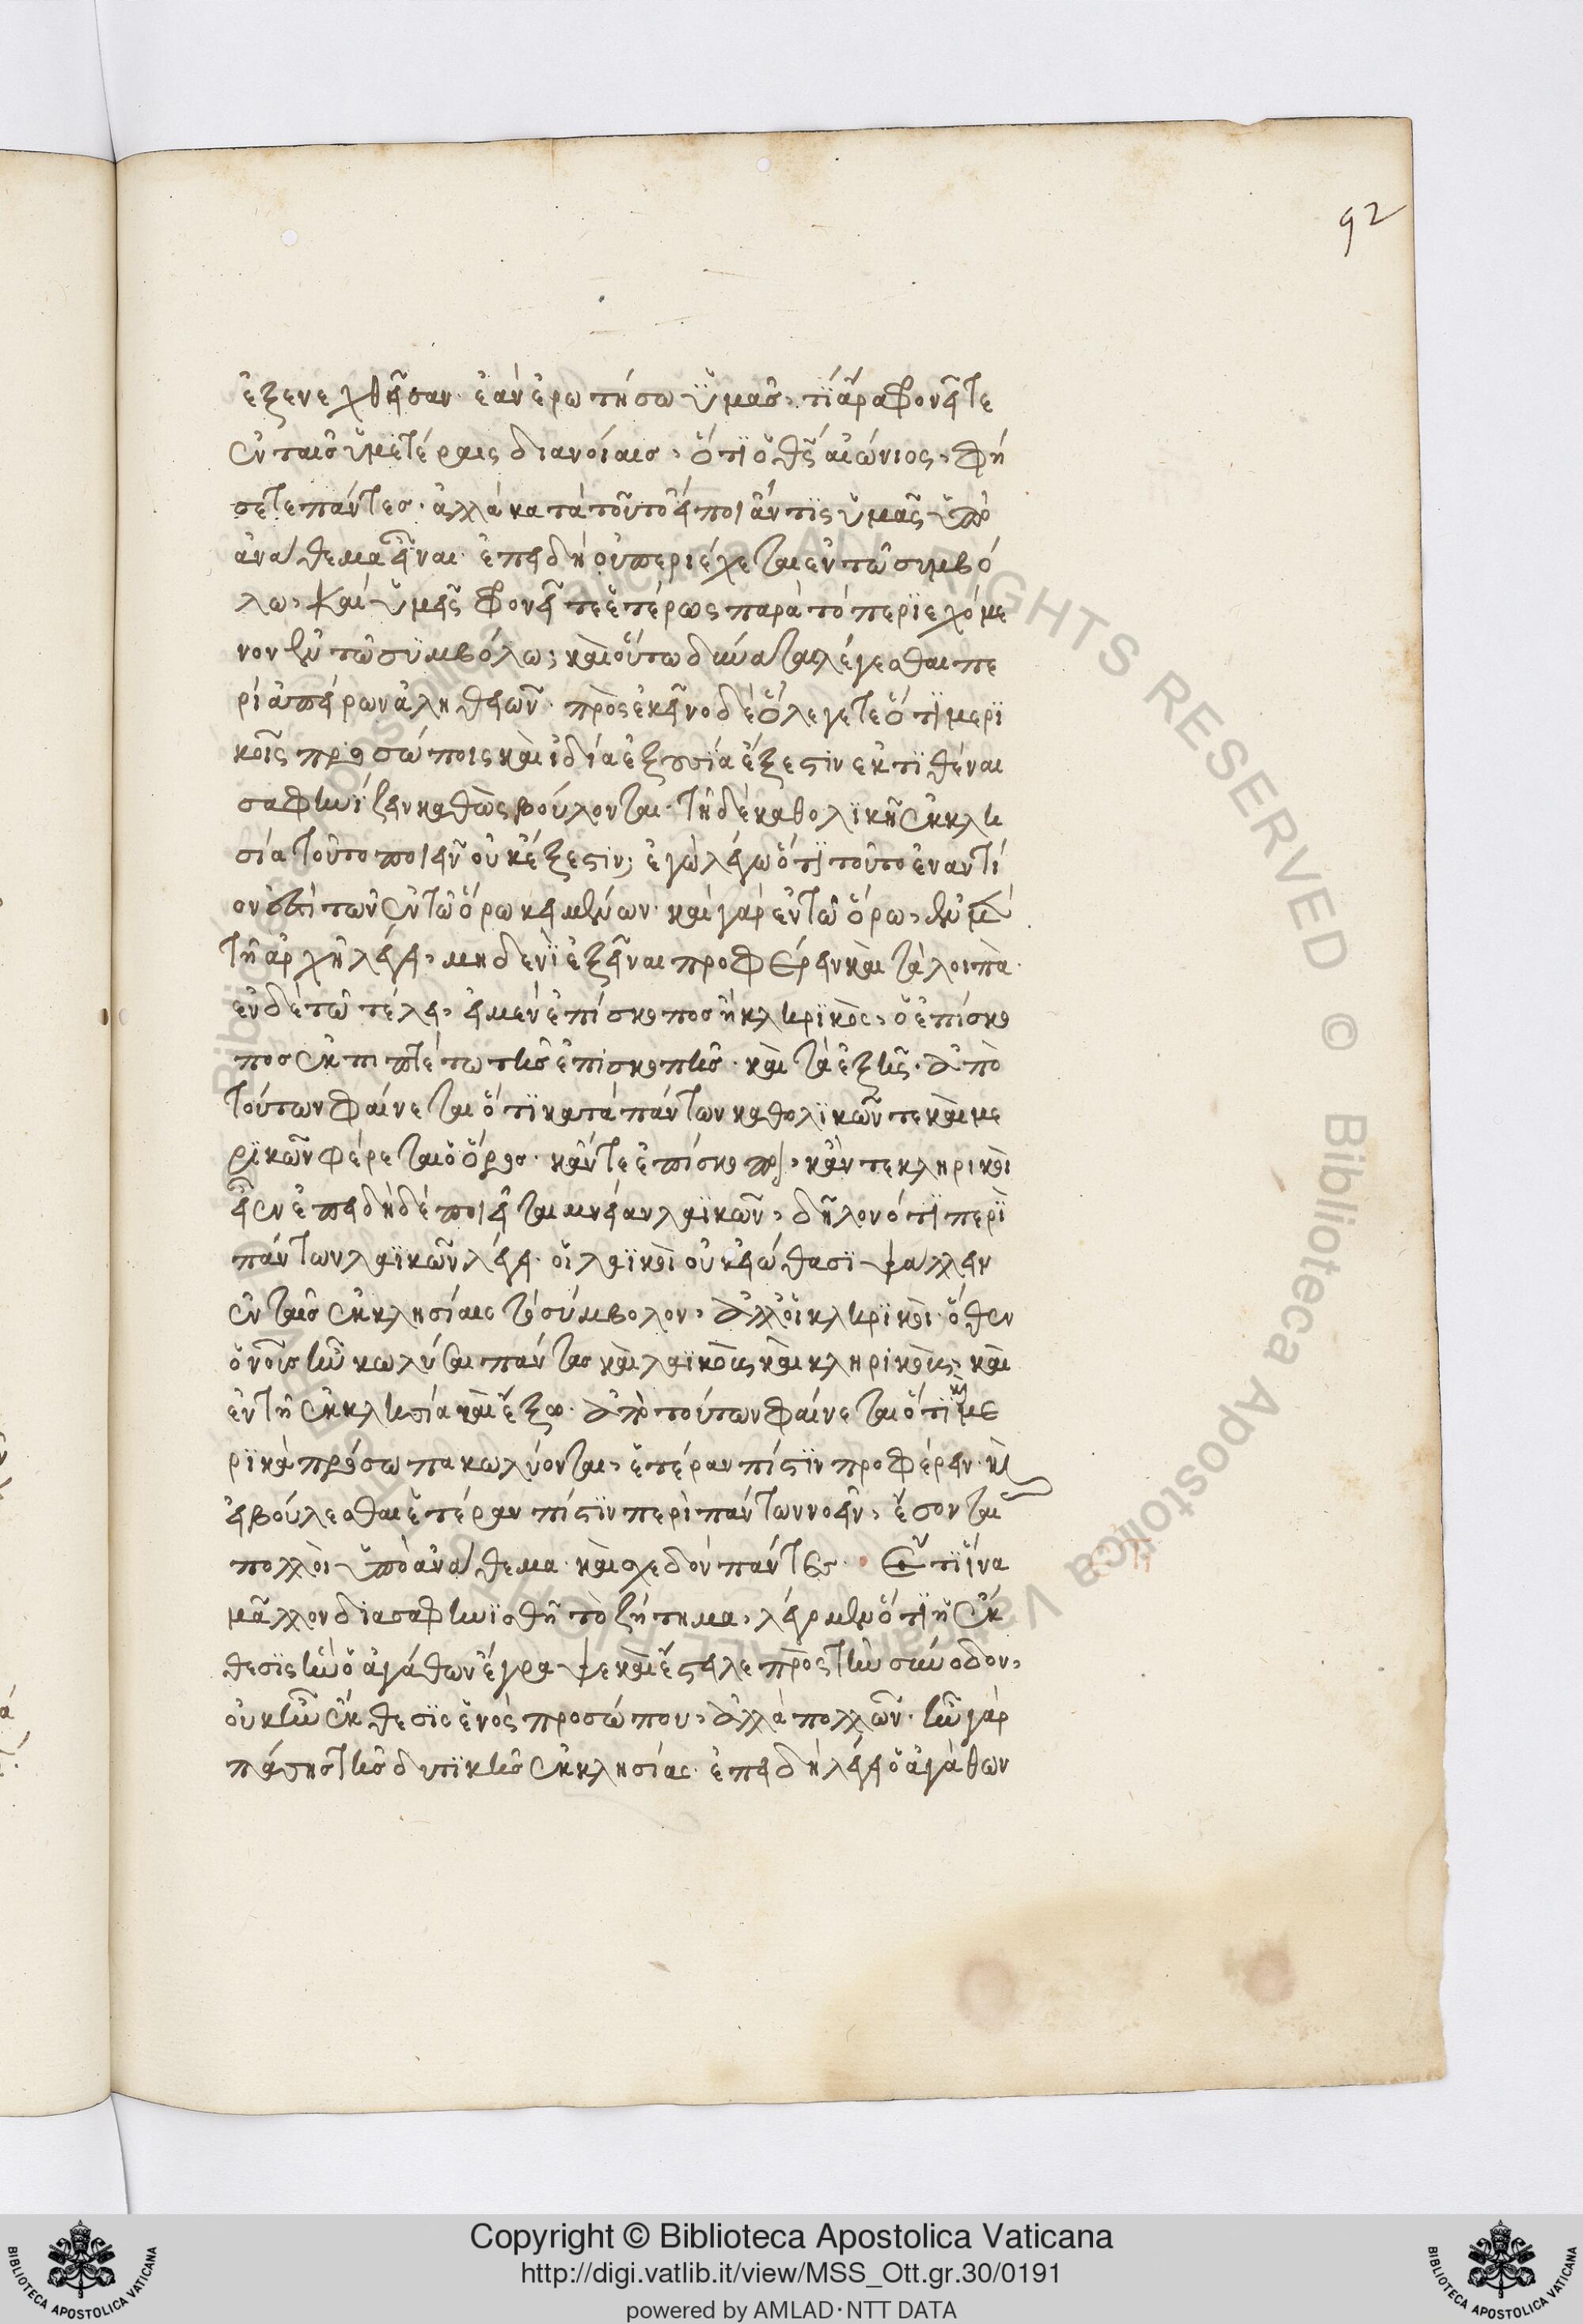 92
ἐξενεχθεῖσαν· ἐὰν ἐρωτήσω ὑμᾶς, τί ἄρα φρονεῖτε
ἐν ταῖς ὑμετέραις διανοίαις, ὅτι ὁ θς αἰώνιος, φή
σετε πάντες· ἀλλὰ κατὰ τοῦτο εἴποι ἄν τις ὑμᾶς ὑπὸ
ἀνάθεμα εἶναι· ἐπειδὴ οὐ περιέχεται ἐν τῷ συμβό
λω, καὶ ὑμεῖς φρονεῖτε ἑτέρως παρὰ τὸ περιεχόμε
νον ἐν τῷ συμβόλω; καὶ οὕτω δύναται λέγεσθαι πε
ρὶ ἀπείρων ἀληθειῶν· πρὸς ἐκεῖνο δὲ ὃ λέγετε ὅτι μερι
κοῖς προσώποις καὶ ἰδία ἐξουσία ἔξεστιν ἐκτιθέναι
σαφηνίζειν καθὼς βούλονται· τῇ δὲ καθολικῇ ἐκκλη
σία τοῦτο ποιεῖν οὐκ ἔξεστιν; ἐγὼ λέγω ὅτι τοῦτο ἐναντί
ον ἐστὶ τῶν ἐν τῷ ὅρω κειμένων· καὶ γὰρ ἐν τῷ ὅρω, ἐν μὲν
τῇ ἀρχῇ λέγει, μηδενὶ ἐξεῖναι προφέρειν καὶ τὰ λοιπὰ·
ἐν δὲ τῷ τέλει, εἰ μὲν ἐπίσκοπος ἢ κληρικὸς, ὁ ἐπίσκο
πος ἐκπιπτέτω τῆς ἐπισκοπῆς· καὶ τὰ ἑξῆς· ἀπὸ
τούτων φαίνεται ὅτι κατὰ πάντων καθολικῶν τε καὶ με
ρικῶν φέρεται ὁ ὅρος· κἄν τε ἐπίσκοποι, κἄν τε κληρικοὶ
εἶεν ἐπειδὴ δὲ ποιεῖται μνείαν λαϊκῶν, δῆλον ὅτι περὶ
πάντων λαϊκῶν λέγει· οἱ λαϊκοὶ οὐκ εἰώθασι ψάλλειν
ἐν ταῖς ἐκκλησίαις τὸ σύμβολον, ἀλλ' οἱ κληρικοὶ· ὅθεν
ὁ νοῦς ἦν κωλῦσαι πάντας καὶ λαϊκοὺς καὶ κληρικοὺς, καὶ
ἐν τῇ ἐκκλησία καὶ ἔξω· ἀπὸ τούτων φαίνεται ὅτι καὶ με
ρικὰ πρόσωπα κωλύονται, ἑτέραν πίστιν προφέρειν· καὶ
εἰ βούλεσθαι ἑτέραν πίστιν περὶ πάντων νοεῖν, ἔσονται
πολλοὶ ὑπὸ ἀνάθεμα· καὶ σχεδὸν πάντες· Ἔτι ἵνα
μᾶλλον διασαφηνισθῇ τὸ ζήτημα, λέγομεν ὅτι ἡ ἔκ
θεσις ἣν ὁ ἀγάθων ἔγραψε καὶ ἔστειλε πρὸς τὴν σύνοδον,
οὐκ ἦν ἔκθεσις ἑνὸς προσώπου, ἀλλὰ πολλῶν· ἦν γὰρ
πάσης τῆς δυτικῆς ἐκκλησίας· ἐπειδὴ λέγει ὁ ἀγάθων
Copyright © Biblioteca Apostolica Vaticana
http://digi.vatlib.it/view/MSS_Ott.gr.30/0191
powered by AMLAD·NTT DATA
BIBLIOTECA APOSTOLICA VATICANA
BIBLIOTECA APOSTOLICA VATICANA